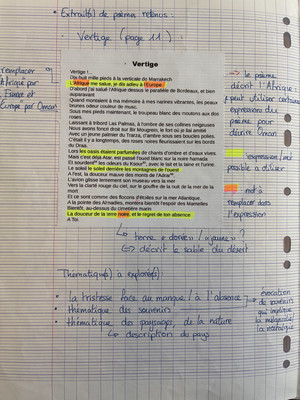 • Extrait(s) de poème retenus :
- Vertige (page 11) :
Vertige
Vertige !...
Dix huit mille pieds à la verticale du Marrakech
L'Afrique me salue, je dis adieu à l'Europe.
D'abord j'ai salué l'Afrique dessus le parallèle de Bordeaux, et bien
auparavant
Quand montaient à ma mémoire à mes narines vibrantes, les peaux
brunes odeur couleur de musc.
Sous mes pieds maintenant, le troupeau blanc des moutons aux dos
roses.
Laissant à tribord Las Palmas, à l'ombre de ses collines religieuses
Nous avons foncé droit sur Bir Mougrein, le fort où je fus aimé
Avec un jeune palmier du Trarza, d'antre sous ses boucles polies.
C'était il y a longtemps, des roses noires fleurissaient sur les bords
du Draa.
Lors les oasis étaient parfumées de chants d'ombre et d'eaux vives.
Mais c'est déjà Atar, est passé l'oued blanc sur la noire hamada
Et sourdent les odeurs du Kaïor, avec le lait et la laine et l'urine
Le soleil le soleil derrière les montagnes de l'ouest
À l'est, la douceur mauve des monts de l'Adrar
L'avion glisse lentement son museau vers le mur
Vers la clarté rouge du ciel, sur le gouffre de la nuit de la mer de la
mort
Et ce sont comme des flocons d'étoiles sur la mer Atlantique.
À la pointe des Almadies, montera bientôt l'espoir des Mamelles
Bientôt, au-dessus du cimetière marin
La douceur de la terre noire, et le regret de ton absence
À Toi.
remplacer
Afrique par
Europe et
Europe par Oman
=> le poème
décrit l'Afrique
peut utiliser certaines
expressions du
poème pour
décrire Oman
: expression / mot
possible à utiliser
: mot à
remplacer dans
l'expression
↳ terre « dorée » / « jaune » ?
=> décrit le sable du désert
Thématique(s) à explorer(s) :
• la tristesse face au manque / à l'absence
• thématique des souvenirs
• thématique des paysages, de la nature
↳ description du pays
Évocation
de souvenirs
qui implique
la mélancolie /
la nostalgie